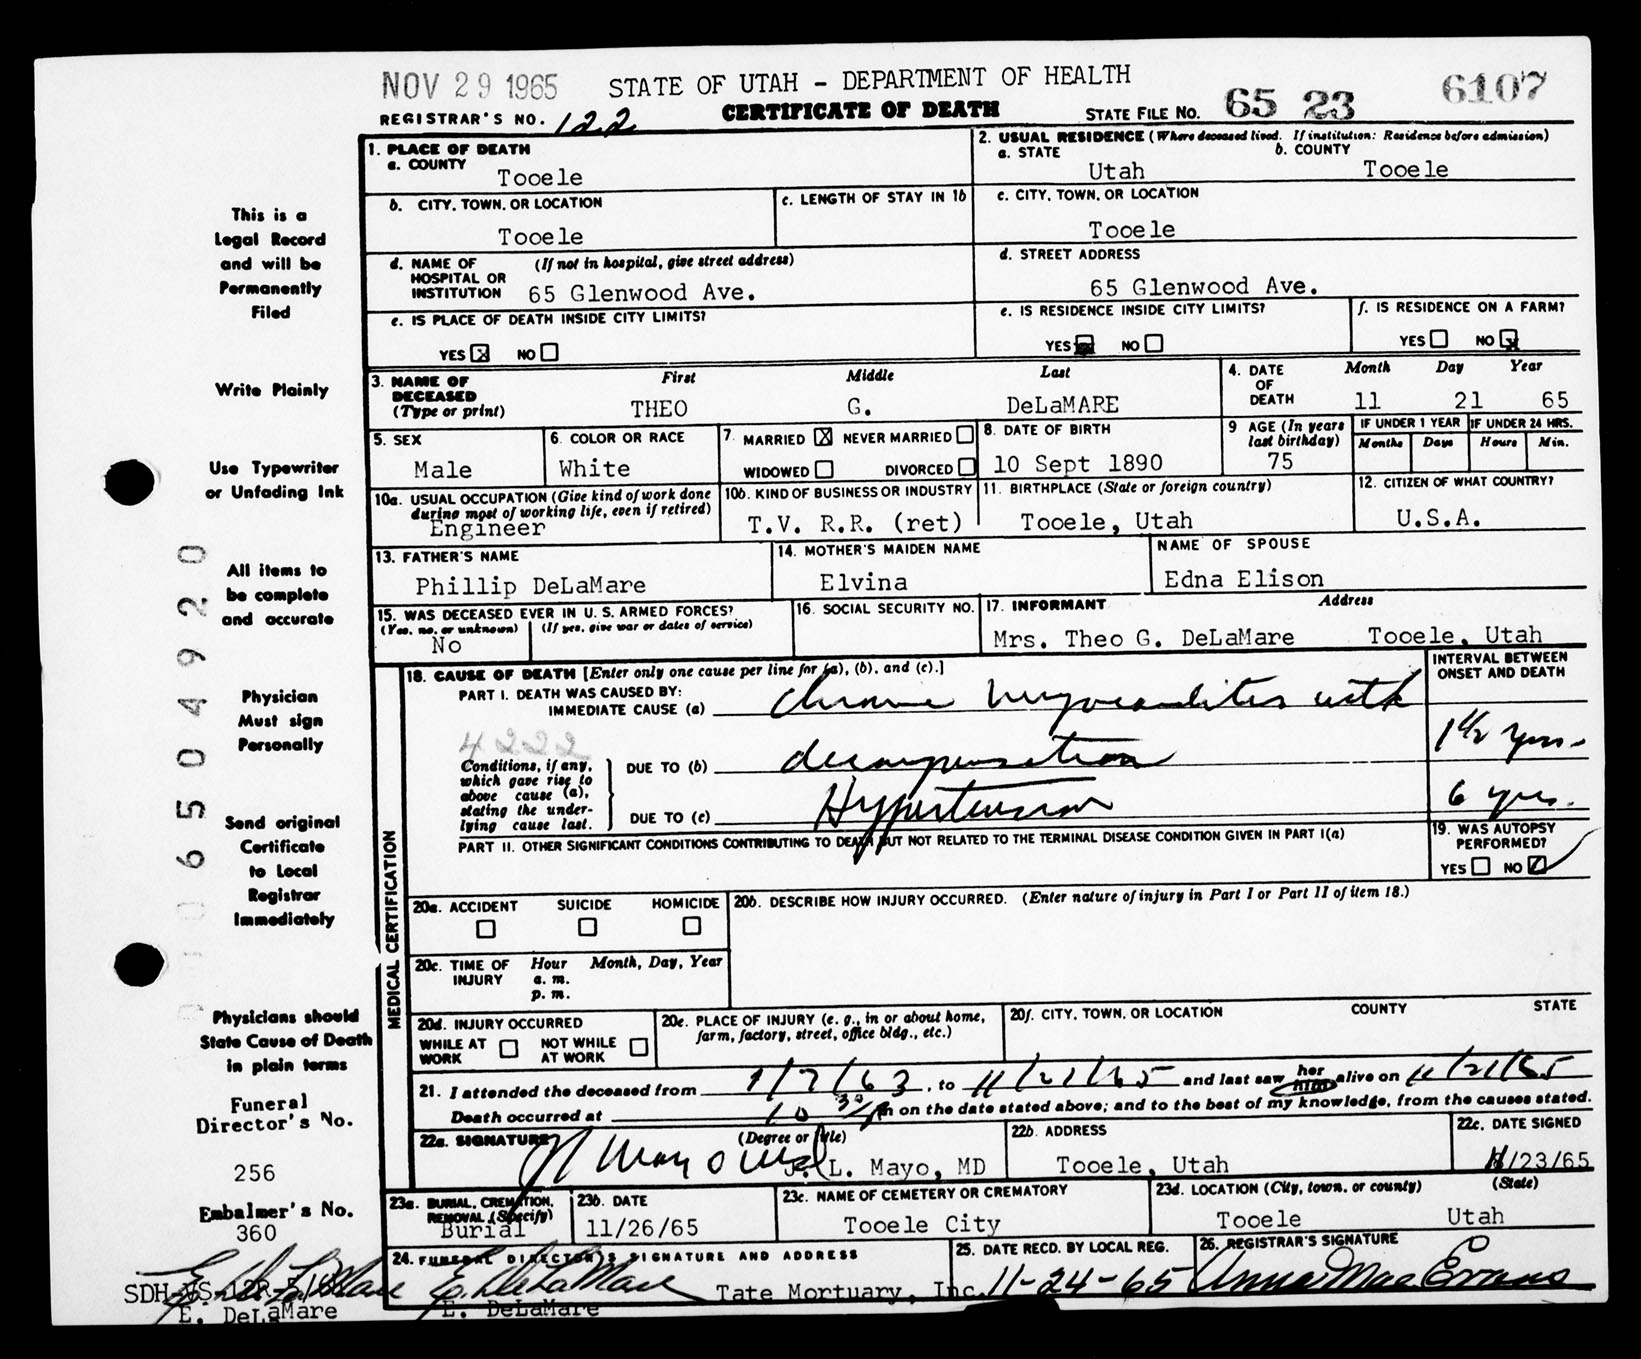 NOV 29 1965 STATE OF UTAH - DEPARTMENT OF HEALTH 6107
REGISTRAR'S NO. 122 CERTIFICATE OF DEATH STATE FILE NO. 65 23
This is a
Legal Record
and will be
Permanently
Filed
Write Plainly
Use Typewriter
or Unfading Ink
All items to
be complete
and accurate
Physician
Must sign
Personally
Send original
Certificate
to Local
Registrar
Immediately
Physicians should
State Cause of Death
in plain terms
Funeral
Director's No.
256
Embalmer's No.
360
E. DeLaMare
06504920
1. PLACE OF DEATH
a. COUNTY
Tooele
2. USUAL RESIDENCE (Where deceased lived. If institution: Residence before admission)
a. STATE b. COUNTY
Utah Tooele
b. CITY, TOWN, OR LOCATION
Tooele
c. LENGTH OF STAY IN 1b
c. CITY, TOWN, OR LOCATION
Tooele
d. NAME OF (If not in hospital, give street address)
HOSPITAL OR
INSTITUTION 65 Glenwood Ave.
d. STREET ADDRESS
65 Glenwood Ave.
e. IS PLACE OF DEATH INSIDE CITY LIMITS?
YES X NO
e. IS RESIDENCE INSIDE CITY LIMITS?
YES NO
f. IS RESIDENCE ON A FARM?
YES NO X
3. NAME OF First Middle Last
DECEASED
(Type or print) THEO G. DeLaMARE
4. DATE Month Day Year
OF
DEATH 11 21 65
5. SEX
Male
6. COLOR OR RACE
White
7. MARRIED X NEVER MARRIED
WIDOWED DIVORCED
8. DATE OF BIRTH
10 Sept 1890
9 AGE (In years
last birthday)
75
IF UNDER 1 YEAR IF UNDER 24 HRS.
Months Days Hours Min.
10a. USUAL OCCUPATION (Give kind of work done
during most of working life, even if retired)
Engineer
10b. KIND OF BUSINESS OR INDUSTRY
T.V. R.R. (ret)
11. BIRTHPLACE (State or foreign country)
Tooele, Utah
12. CITIZEN OF WHAT COUNTRY?
U.S.A.
13. FATHER'S NAME
Phillip DeLaMare
14. MOTHER'S MAIDEN NAME
Elvina
NAME OF SPOUSE
Edna Elison
15. WAS DECEASED EVER IN U. S. ARMED FORCES?
(Yes, no, or unknown) (If yes, give war or dates of service)
No
16. SOCIAL SECURITY NO.
17. INFORMANT Address
Mrs. Theo G. DeLaMare Tooele, Utah
MEDICAL CERTIFICATION
18. CAUSE OF DEATH [Enter only one cause per line for (a), (b), and (c).]
INTERVAL BETWEEN
ONSET AND DEATH
PART I. DEATH WAS CAUSED BY:
IMMEDIATE CAUSE (a) chronic myocarditis with
4222
Conditions, if any,
which gave rise to
above cause (a),
stating the under-
lying cause last.
DUE TO (b) decompensation 1 1/2 yrs.
DUE TO (c) Hypertension 6 yrs.
PART II. OTHER SIGNIFICANT CONDITIONS CONTRIBUTING TO DEATH BUT NOT RELATED TO THE TERMINAL DISEASE CONDITION GIVEN IN PART I(a)
19. WAS AUTOPSY
PERFORMED?
YES NO
20a. ACCIDENT SUICIDE HOMICIDE
20b. DESCRIBE HOW INJURY OCCURRED. (Enter nature of injury in Part I or Part II of item 18.)
20c. TIME OF Hour Month, Day, Year
INJURY a. m.
p. m.
20d. INJURY OCCURRED
WHILE AT NOT WHILE
WORK AT WORK
20e. PLACE OF INJURY (e. g., in or about home,
farm, factory, street, office bldg., etc.)
20f. CITY, TOWN, OR LOCATION COUNTY STATE
21. I attended the deceased from 1/7/63, to 11/21/65 and last saw her him alive on 11/21/65
Death occurred at 10 30 m on the date stated above; and to the best of my knowledge, from the causes stated.
22a. SIGNATURE (Degree or title)
J. L. Mayo, MD
22b. ADDRESS
Tooele, Utah
22c. DATE SIGNED
11/23/65
23a. BURIAL, CREMATION,
REMOVAL (Specify)
Burial
23b. DATE
11/26/65
23c. NAME OF CEMETERY OR CREMATORY
Tooele City
23d. LOCATION (City, town, or county) (State)
Tooele Utah
24. FUNERAL DIRECTOR'S SIGNATURE AND ADDRESS
E. DeLaMare Tate Mortuary, Inc.
E. DeLaMare
25. DATE RECD. BY LOCAL REG.
11-24-65
26. REGISTRAR'S SIGNATURE
Anna Mae Evans